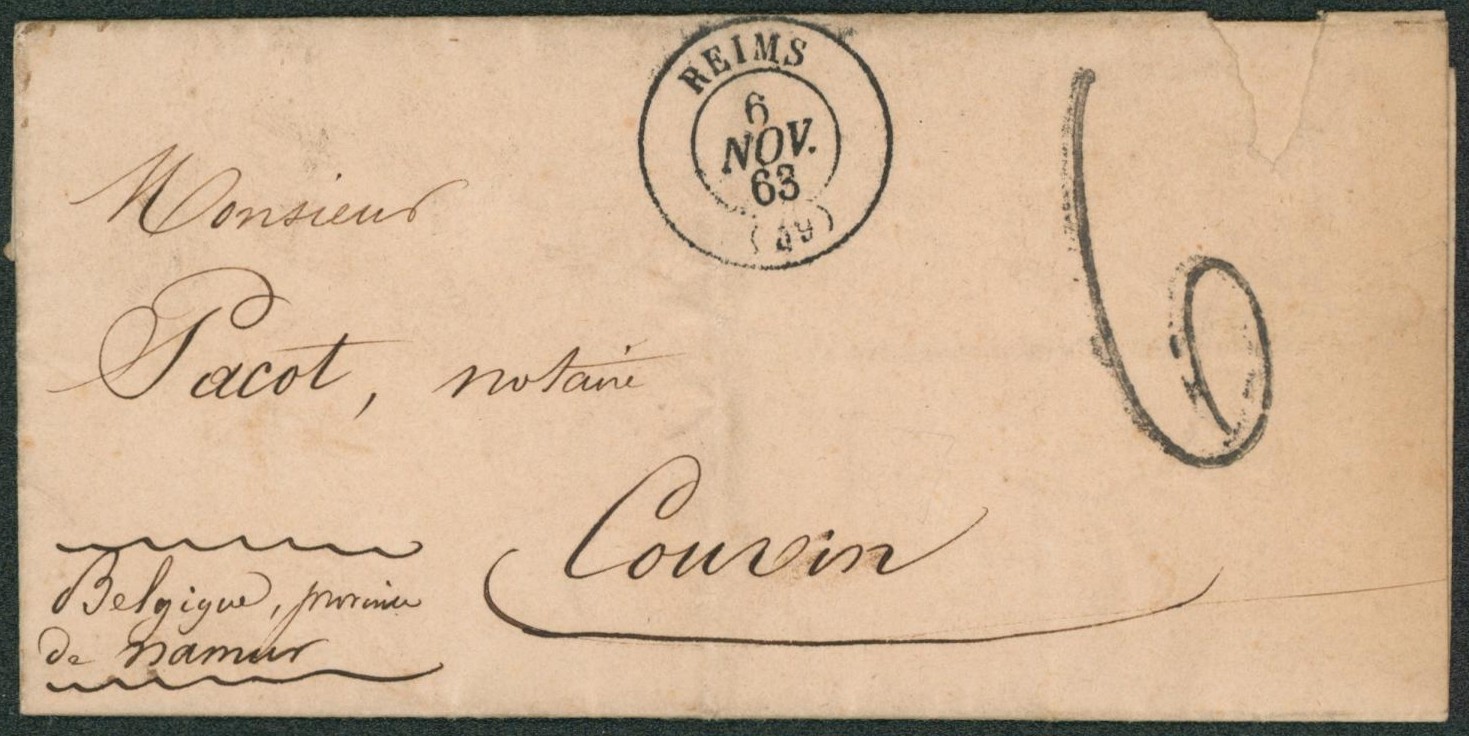 REIMS
6
NOV.
63
(49)
6
Monsieur
Pacot, notaire
Couvin
Belgique, province
de namur